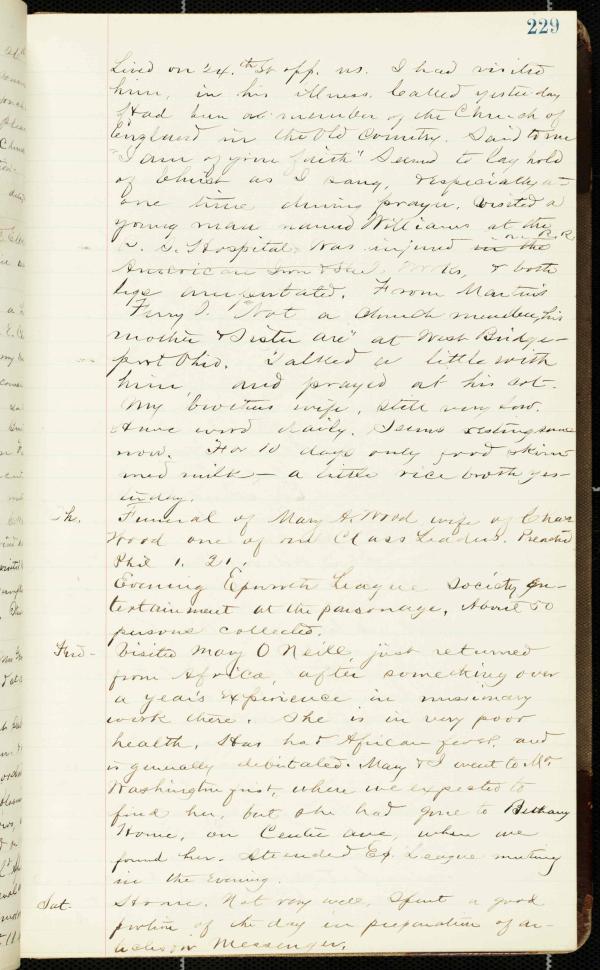 229
Lived on 24.th St opp. us. I had visited
him, in his illness. Called yesterday
Had been a member of the Church of
England in the Old Country. Said to me
"I am of your faith" Seemed to lay hold
of Christ as I sang, & especially at
one time during prayer. Visited a
young man named Williams at the
S. S. Hospital. Was injured in the on R. R.
American Iron & Steel Works, & both
legs amputated. From Martin's
Ferry O. "Not a church member, his
mother & sister are" at West Bridge-
port Ohio. Talked a little with
him and prayed at his cot.
My brother's wife, still very low.
Have word daily. Seems resting some
now. For 10 days only good skim
med milk — a little rice broth yes-
terday.
Th. Funeral of Mary A. Wood wife of Chas
Wood one of our Class Leaders. Preached
Phil 1. 21.
Evening Epworth League Society En-
tertainment at the parsonage. About 50
persons collected.
Frid - Visited Mary O Neill, just returned
from Africa, after something over
a year's experience in missionary
work there. She is in very poor
health. Has had African fever, and
is generally debilitated. May & I went to Mt.
Washington first, where we expected to
find her, but she had gone to Bethany
Home, on Centre ave, where we
found her. Attended Ep. League meeting
in the Evening.
Sat. Home. Not very well. Spent a good
portion of the day in preparation of ar-
ticles for Messenger.